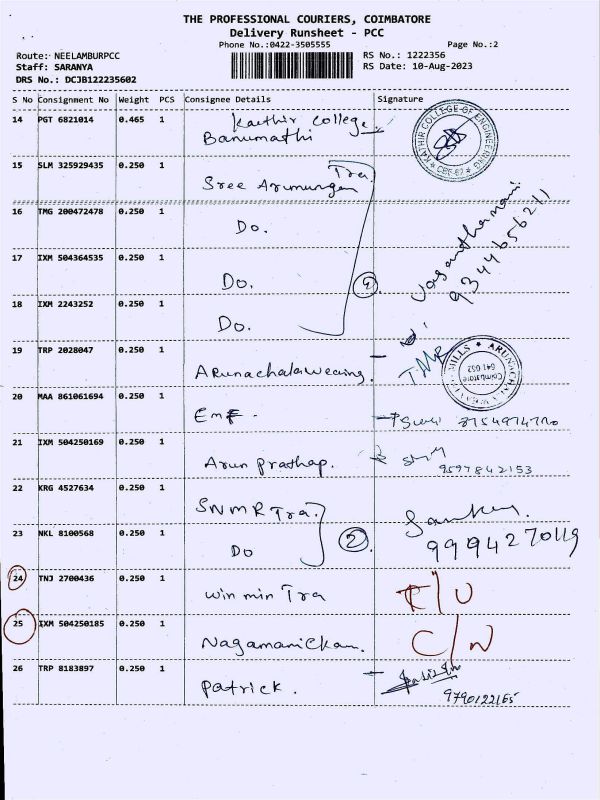 THE PROFESSIONAL COURIERS, COIMBATORE
Delivery Runsheet - PCC
Phone No.:0422-3505555 Page No.:2
Route: NEELAMBURPCC RS No.: 1222356
Staff: SARANYA RS Date: 10-Aug-2023
DRS No.: DCJB122235602
S No Consignment No Weight PCS Consignee Details Signature
14 PGT 6821014 0.465 1 Kathir College
Banumathi
KATHIR COLLEGE OF ENGINEERING
CBE-62
15 SLM 325929435 0.250 1 Sree Arumungan Tra.
16 TMG 200472478 0.250 1 Do.
17 IXM 504364535 0.250 1 Do.
18 IXM 2243252 0.250 1 Do.
4
Vasanthamani
9344656211
19 TRP 2028047 0.250 1 Arunachalaweaving.
TMR
MILLS * ARUNACHALA
Coimbatore
641 062
20 MAA 861061694 0.250 1 Emf.
8754974770
21 IXM 504250169 0.250 1 Arun prathap.
9597842153
22 KRG 4527634 0.250 1 SNMR Tra.
23 NKL 8100568 0.250 1 Do
2
9994270119
24 TNJ 2700436 0.250 1 win min Tra
25 IXM 504250185 0.250 1 Nagamanickam. C/N
26 TRP 8183897 0.250 1 Patrick.
9790122165